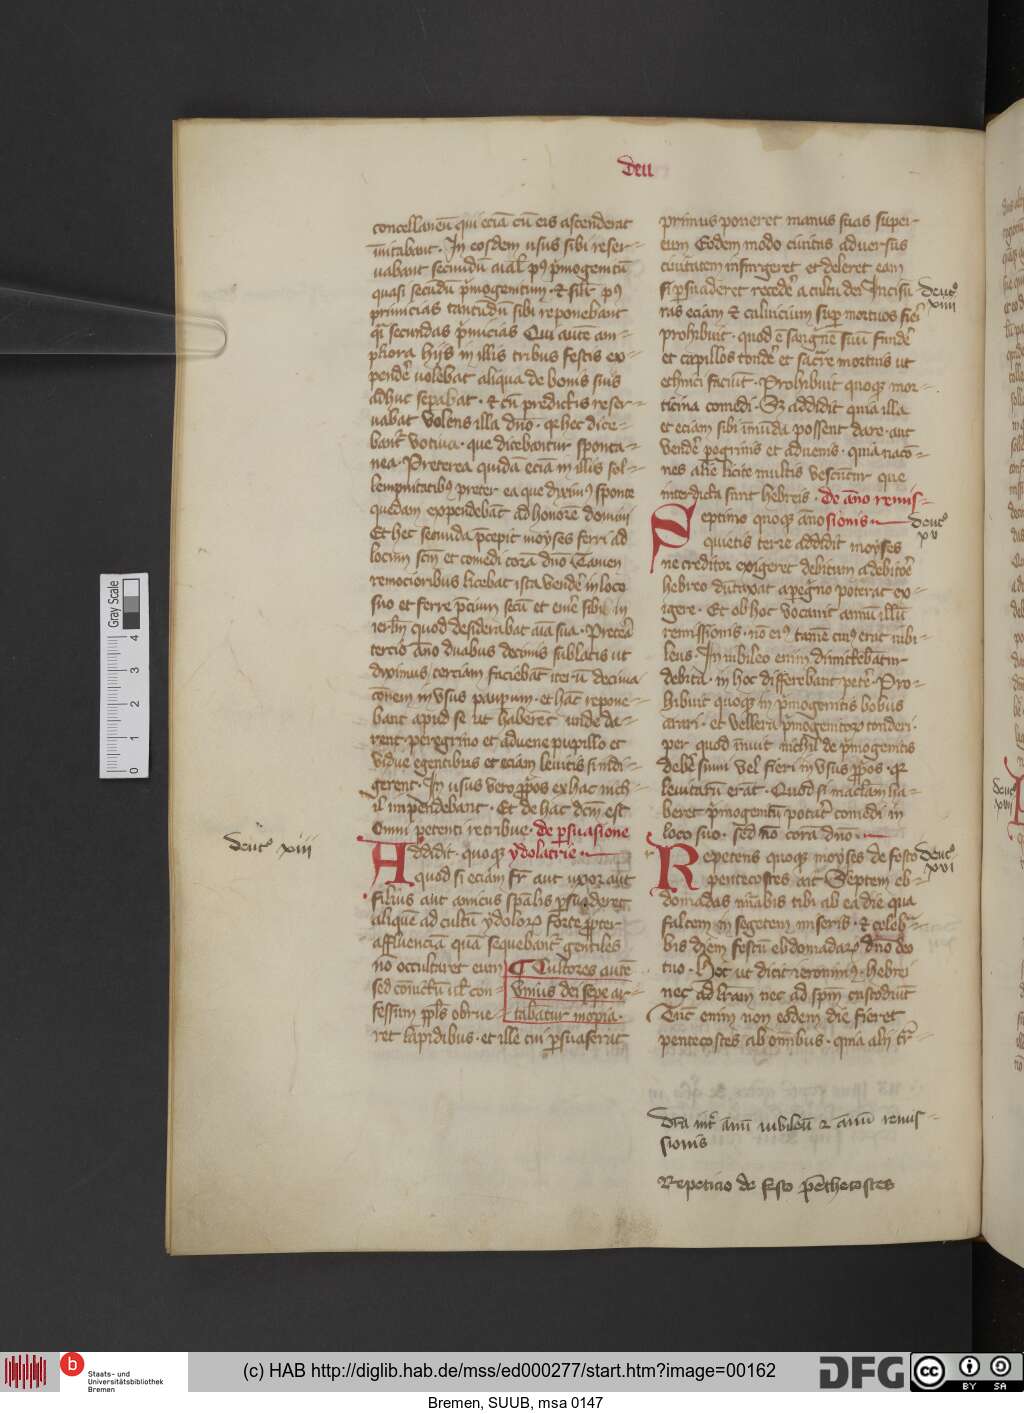 Deu
concellaneū qui eciā cū eis ascenderat
īuitabant. In eosdem usus sibi reser-
uabant secundū aīal' pꝰ p̄mogenitū
quasi secūdū p̄mogenitum. et sil'r pꝰ
primicias tantūdū sibi reponebant
q̄i secundas p̄micias Qui autē am-
phora hijs in illis tribus festis ex-
pender̄ uolebat aliqua de bonis suis
adhuc sepabat. et cū predictis reser-
uabat volens illa dn̄o. et hec dice-
bant̄ votiua. que dicebantur sponta-
nea. Preterea quidā eciā in illis sol-
lempnitatibꝰ preter ea que diximꝰ sponte
quedam expendebāt ad honorē domini
Et hec secunda p̄cepit moyses ferri ad
locum scm̄ et comedi corā dn̄o Tamen
remocioribus licebat ista vender̄ in loco
suo et ferre p̄cium secū et emēre sibi in
ierl'm quod desiderabat aīa sua. Preterā
tercio āno duabus decimis sublatis ut
diximus terciam faciebāt iterū decima
cionem in vsus paupum. et hāc repone-
bant apud se ut haberēt unde da-
rent peregrino et aduene pupillo et
vidue egentibus et eciam leuitis si indi-
gerent. In usus vero pp̄os ex hac nich-
il impendebant. Et de hac dcm̄ est
Omni petenti te tribue. de p̄suasione
Addidit quoqꝫ ydolatrie
quod si eciam fr̄ aut vxor aut
filius aut amicus sp̄alis p̄suaderet
aliquē ad cultū ydoloꝝ forte pp̄ter
affluenciā quā sequebant̄ gentiles
nō occultaret eum
sed conuictū uel con-
fessum pp̄l's obrue-
ret lapidibus. et ille cui p̄suaserat
¶ Cultores autē
vnius dei sepe ar-
tabatur inopia.
deutꝰ xiii
primus poneret manus suas super
eum Eodem modo ciuitas aduersus
ciuitatem insurgeret et deleret eam
si p̄suaderet recedēre a cultu dei Incisu
ras eciam et caluicium sup̄ mortuos fieri
prohibuit. quod ē sangn̄ē suū funder̄
et capillos tonder̄ et sac̄re mortuis ut
ethnici faciūt. Prohibuit quoqꝫ mor-
ticina comedi. Sꝫ addidit quia illa
et eciam sibi īmūda possent dare aut
vender̄ pegrinis et aduenis. quia nacō-
nes alie licite multis vescūtur que
interdicta sunt hebreis. de āno remis-
Septimo quoqꝫ āno sionis
quietis terre addidit moyses
ne creditor exigeret debitum a debitōre
hebreo dūtaxat a peg̊no poterat ex-
igere. Et ob hoc vocauit annū illū
remissionis. nō eiꝰ tamē cuiꝰ erat iubi-
leus. In iubileo enim dimittebātur
debita. in hoc differebant peter̄. Pro-
hibuit quoqꝫ in p̄mogenitis bobus
arari. et vellera p̄mogenitoꝝ tonderi.
per quod īnuit nichil de p̄mogenitis
debēre sumi vel fieri in vsus pp̄os. quia
leuitarū erāt. Quod si maculam ha-
beret p̄mogenitū potat̄ comedi in
loco suo. sed nō corā dn̄o
Repetens quoqꝫ moyses de festo
pentecostes ait Septem eb-
domadas nūabis tibi ab ea die qua
falcem in segetem miseris. et celebra-
bis diem festū ebdomadaꝝ dn̄o deo
tuo. Hoc ut dicit ieronimꝰ. hebrei
nec ad lrām nec ad sp̄m custodiūt
Tūc enim non eodem die fieret
pentecostes ab omībus. quia alij t̄r-
deutꝰ xiiii
deutꝰ xv
deutꝰ xvi
Dr̄a int̄ annū iubileū et annū remis-
sionis
Repeticio de festo pēthecostes
deutꝰ xvii
Gray Scale
0 1 2 3 4
b Staats- und Universitätsbibliothek Bremen
(c) HAB http://diglib.hab.de/mss/ed000277/start.htm?image=00162
DFG
cc BY SA
Bremen, SUUB, msa 0147